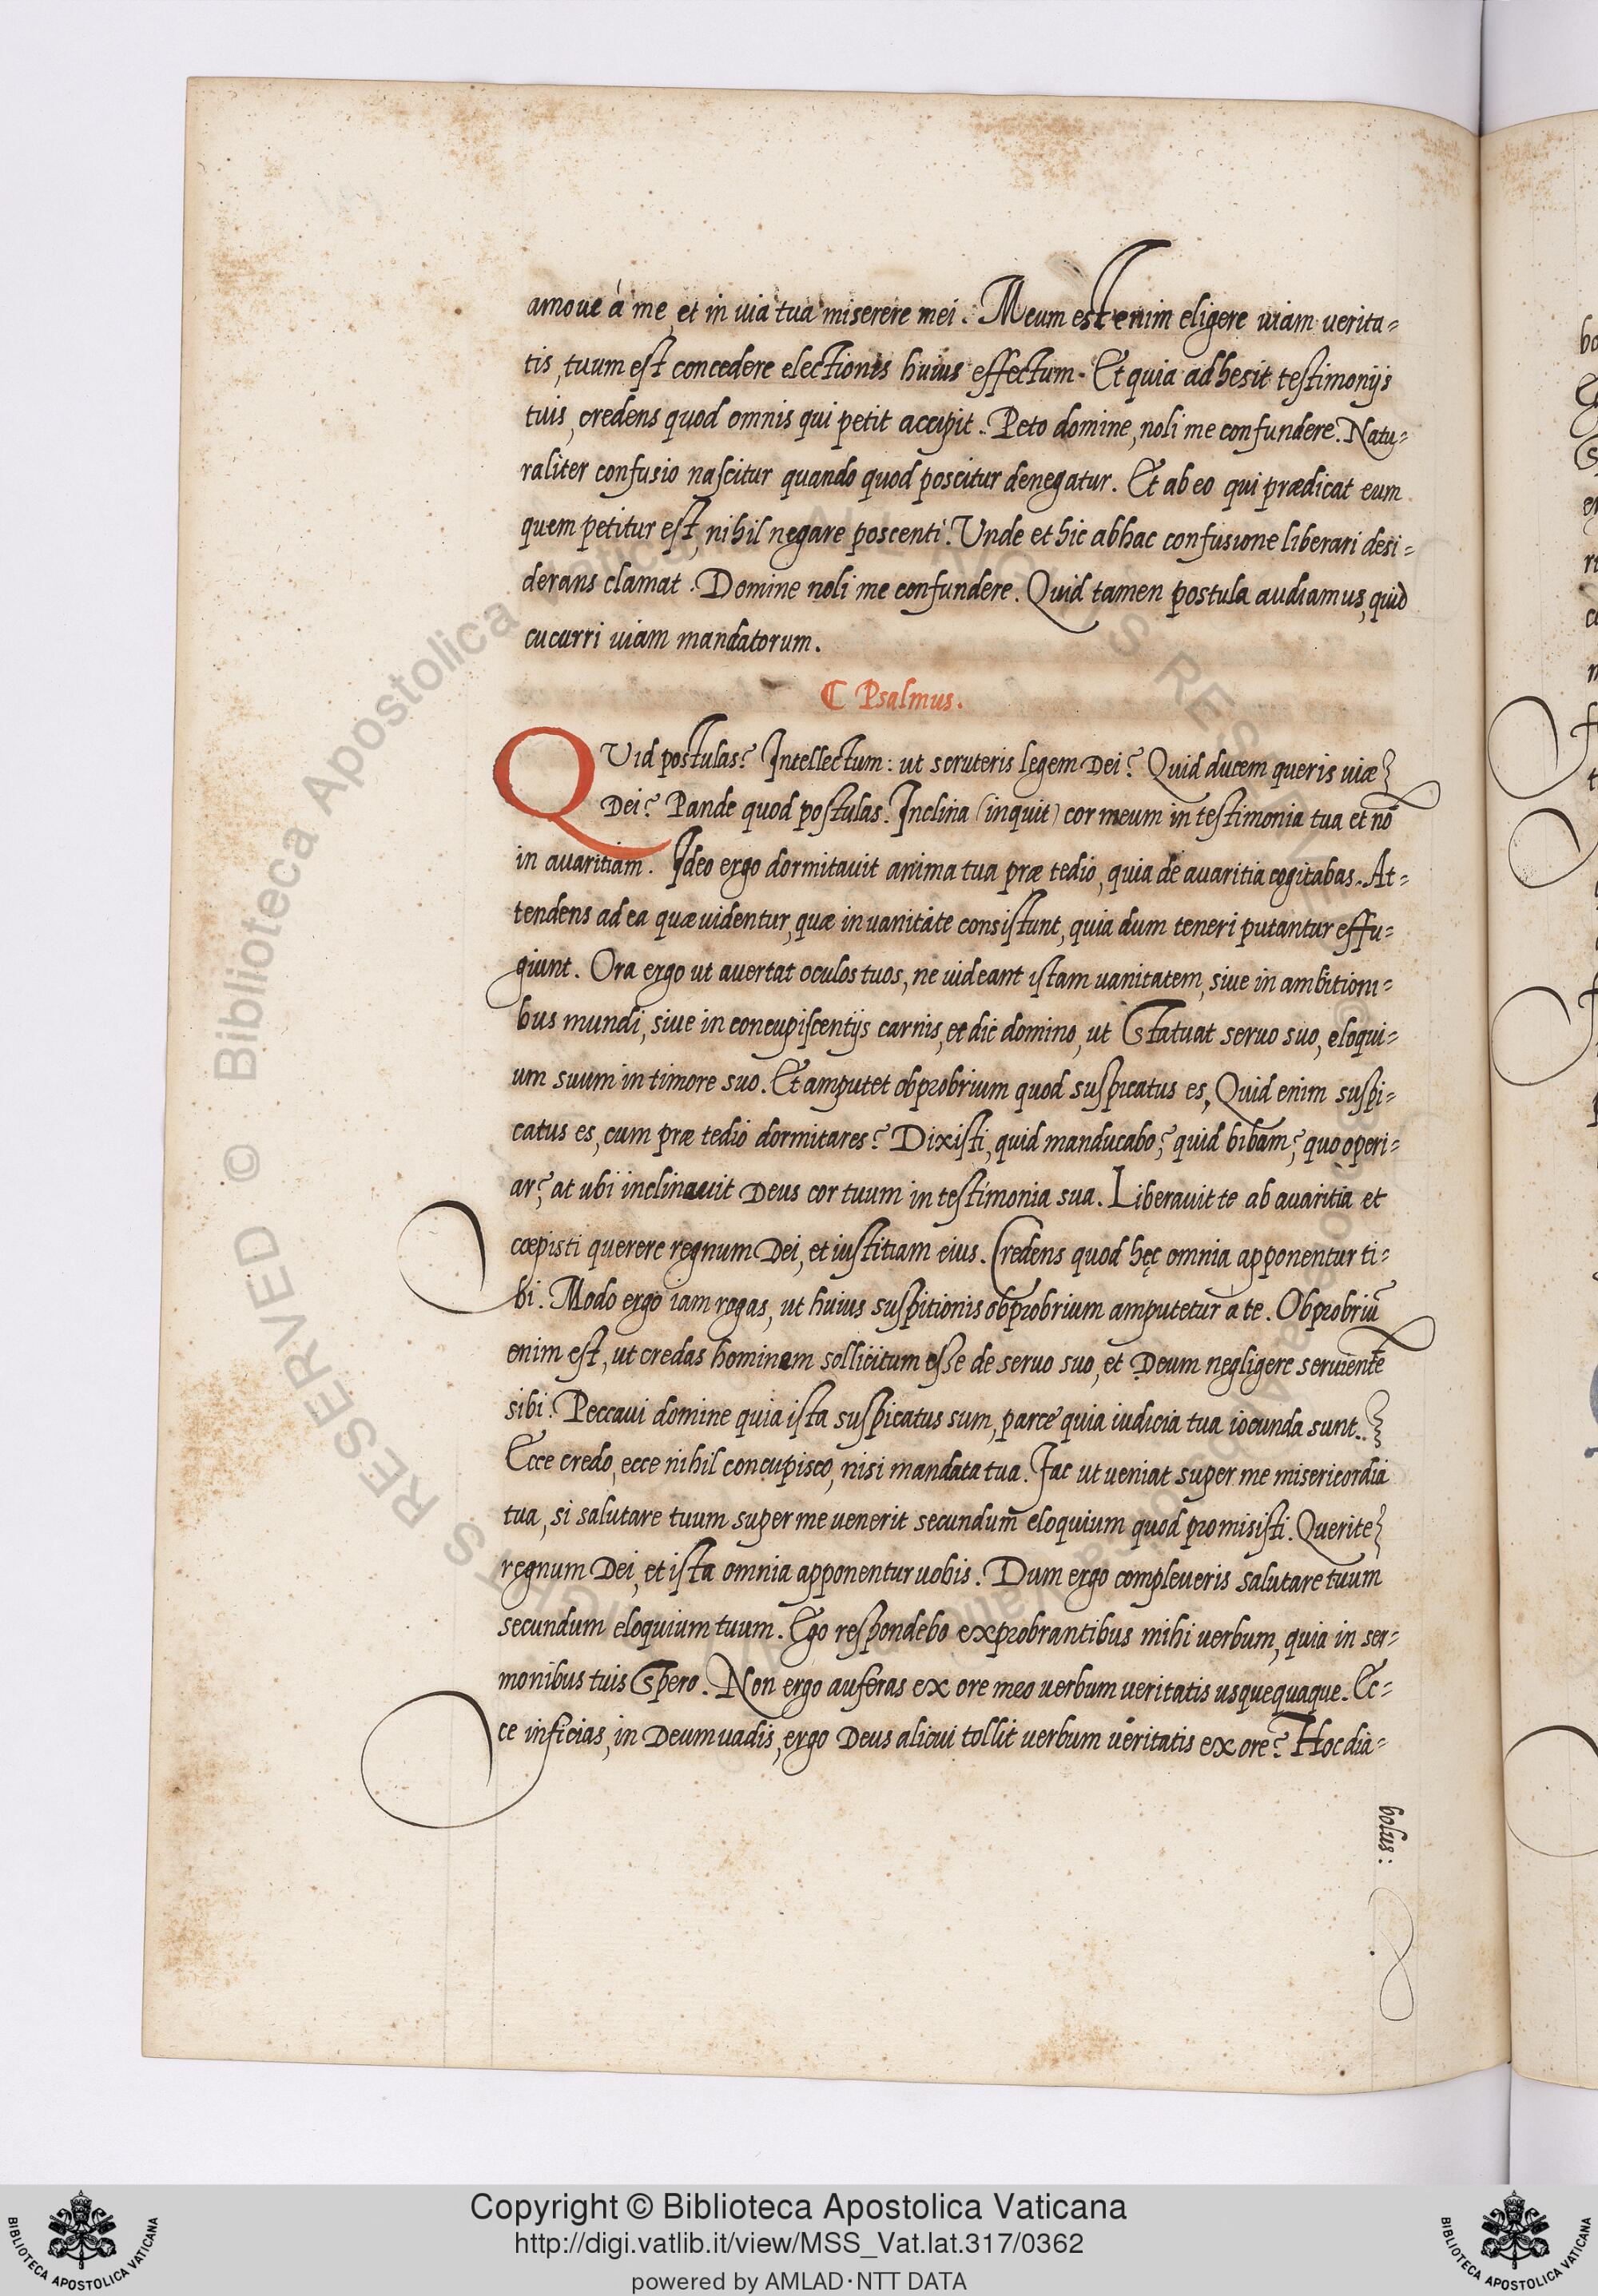 amove à me, et in uia tua miserere mei. Meum est enim eligere uiam uerita=
tis, tuum est concedere electionis huius effectum. Et quia adhesit testimonijs
tuis, credens quod omnis qui petit accipit. Peto domine, noli me confundere. Natu=
raliter confusio nascitur quando quod poscitur denegatur. Et ab eo qui prædicat eum
quem petitur est, nihil negare poscenti. Unde et hic ab hac confusione liberari desi=
derans clamat. Domine noli me confundere. Quid tamen postula audiamus, quid
cucurri uiam mandatorum.
¶ Psalmus.
QUid postulas? Intellectum: ut scruteris legem Dei? Quid ducem queris uiæ
Dei? Pande quod postulas. Inclina (inquit) cor meum in testimonia tua et nō
in auaritiam. Ideo ergo dormitauit anima tua præ tedio, quia de auaritia cogitabas. At=
tendens ad ea quæ uidentur, quæ in uanitate consistunt, quia dum teneri putantur effu=
giunt. Ora ergo ut auertat oculos tuos, ne uideant istam uanitatem, siue in ambitioni=
bus mundi, siue in concupiscentijs carnis, et dic domino, ut Statuat seruo suo, eloqui=
um suum in timore suo. Et amputet obprobrium quod suspicatus es, Quid enim suspi=
catus es, cum præ tedio dormitares? Dixisti, quid manducabo? quid bibam? quo operi=
ar? at ubi inclinauit Deus cor tuum in testimonia sua. Liberauit te ab auaritia et
cœpisti querere regnum Dei, et iustitiam eius. Credens quod hęc omnia apponentur ti=
bi. Modo ergo iam rogas, ut huius suspitionis obprobrium amputetur a te. Obprobriū
enim est, ut credas hominem sollicitum esse de seruo suo, et Deum negligere seruientē
sibi. Peccaui domine quia ista suspicatus sum, parce quia iudicia tua iocunda sunt.
Ecce credo, ecce nihil concupisco, nisi mandata tua. Fac ut ueniat super me misericordia
tua, si salutare tuum super me uenerit secundum eloquium quod promisisti. Querite
regnum Dei, et ista omnia apponentur uobis. Dum ergo compleueris salutare tuum
secundum eloquium tuum. Ego respondebo exprobrantibus mihi uerbum, quia in ser=
monibus tuis Spero. Non ergo auferas ex ore meo uerbum ueritatis usquequaque. Ec=
ce inficias, in Deum uadis, ergo Deus alicui tollit uerbum ueritatis ex ore? Hoc dia=
bolus:
Copyright © Biblioteca Apostolica Vaticana
http://digi.vatlib.it/view/MSS_Vat.lat.317/0362
powered by AMLAD·NTT DATA
BIBLIOTECA APOSTOLICA VATICANA
BIBLIOTECA APOSTOLICA VATICANA